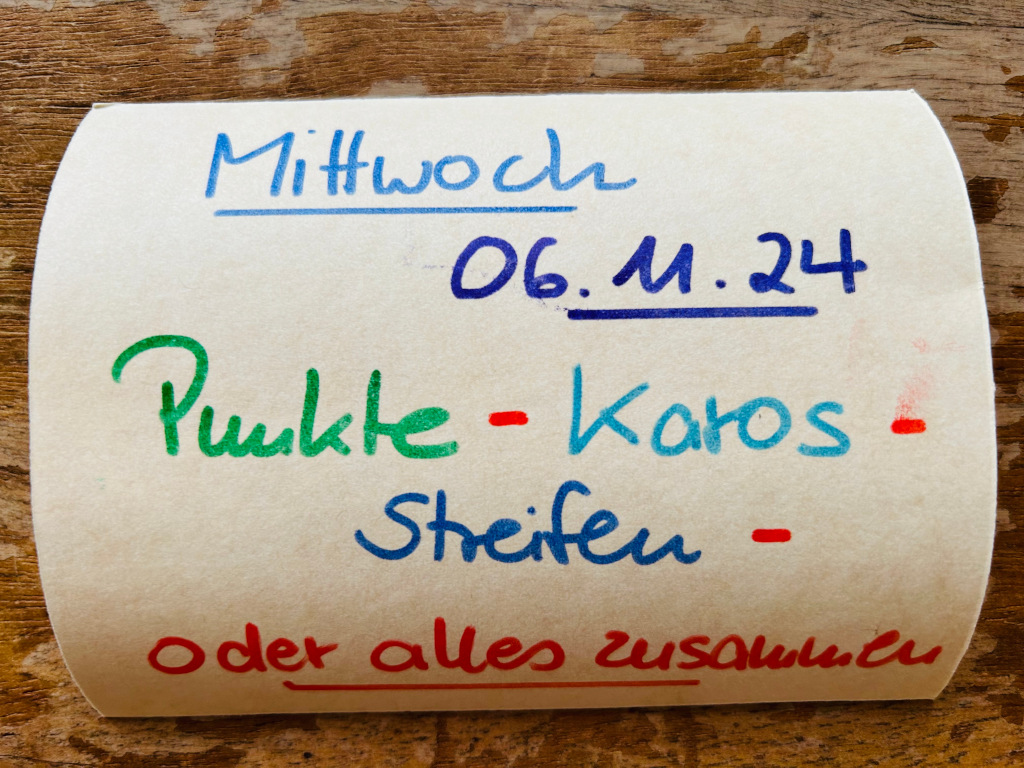 Mittwoch
06.11.24
Punkte - Karos -
Streifen -
oder alles zusammen